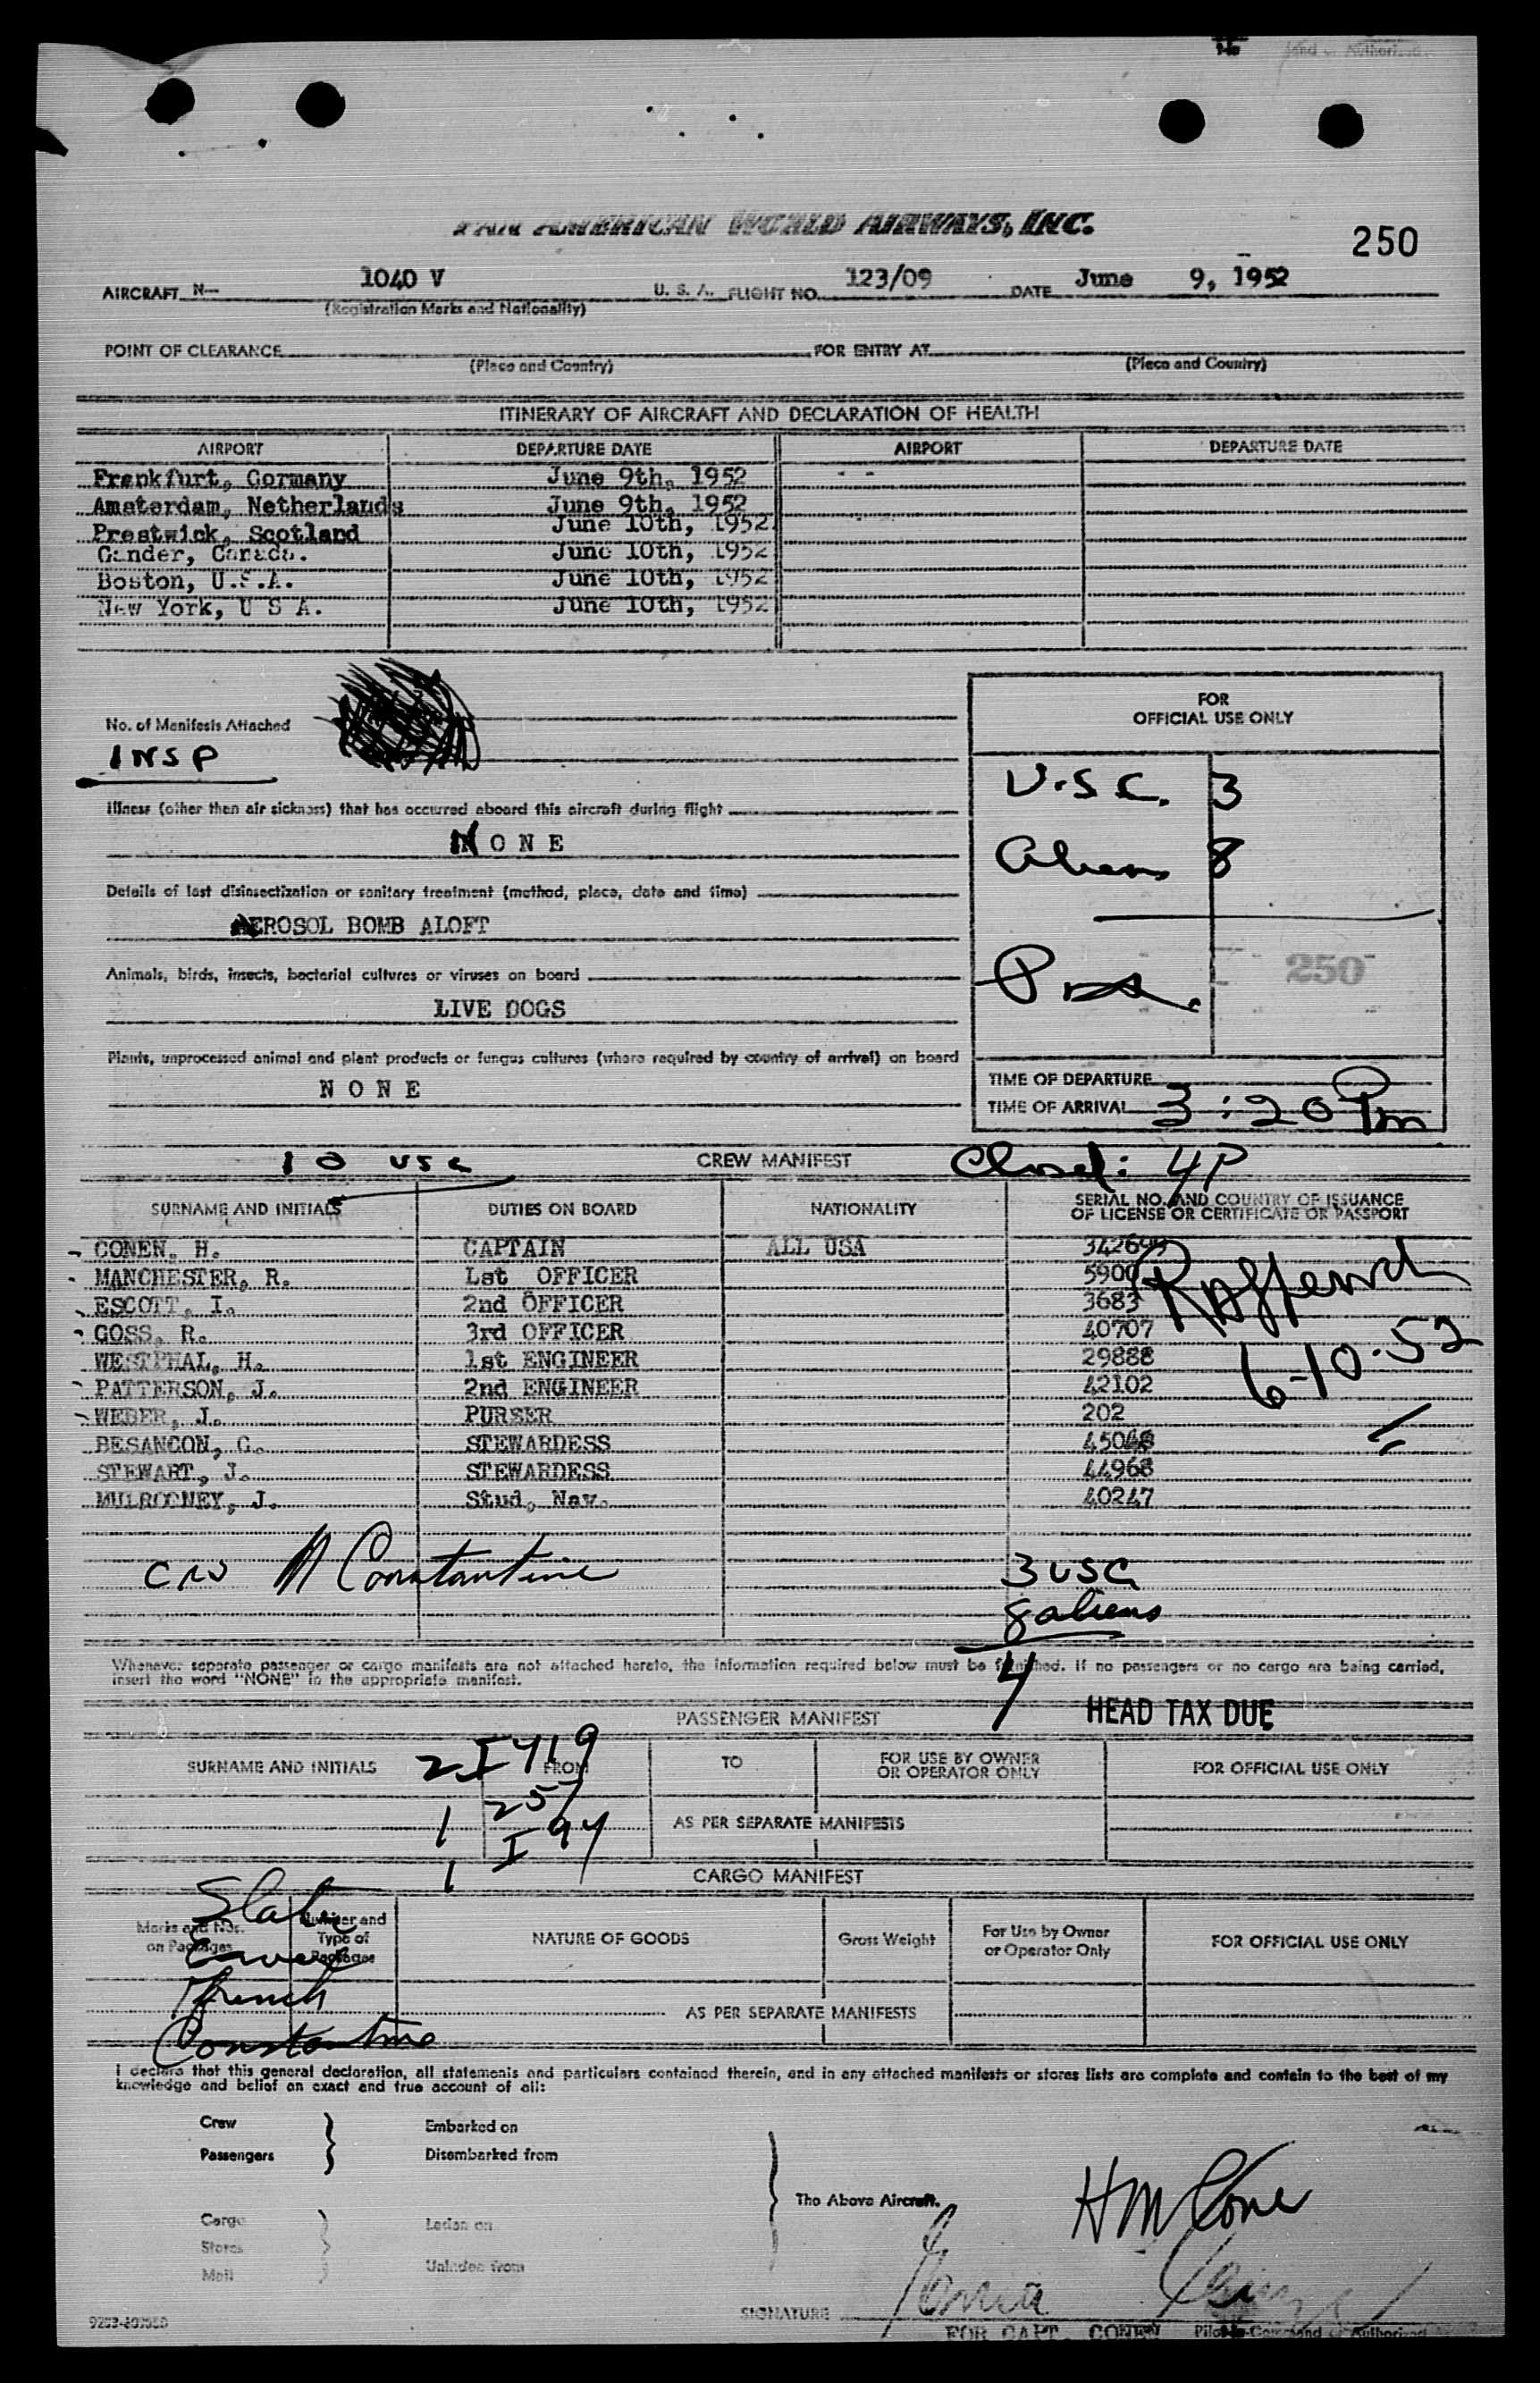 PAN AMERICAN WORLD AIRWAYS, INC.
250
AIRCRAFT N- 1040 V U. S. A. FLIGHT NO. 123/09 DATE June 9, 1952
(Registration Marks and Nationality)
POINT OF CLEARANCE FOR ENTRY AT
(Place and Country) (Place and Country)
ITINERARY OF AIRCRAFT AND DECLARATION OF HEALTH
AIRPORT DEPARTURE DATE AIRPORT DEPARTURE DATE
Frankfurt, Germany June 9th, 1952
Amsterdam, Netherlands June 9th, 1952
Prestwick, Scotland June 10th, 1952
Gander, Canada. June 10th, 1952
Boston, U.S.A. June 10th, 1952
New York, U S A. June 10th, 1952
No. of Manifests Attached
INSP
Illness (other than air sickness) that has occurred aboard this aircraft during flight
NONE
Details of last disinsectization or sanitary treatment (method, place, date and time)
AEROSOL BOMB ALOFT
Animals, birds, insects, bacterial cultures or viruses on board
LIVE DOGS
Plants, unprocessed animal and plant products or fungus cultures (where required by country of arrival) on board
NONE
FOR
OFFICIAL USE ONLY
U.S.C. 3
Aliens 8
250
TIME OF DEPARTURE
TIME OF ARRIVAL 3:20 Pm
10 USC CREW MANIFEST Closed: 4P
SURNAME AND INITIALS DUTIES ON BOARD NATIONALITY SERIAL NO. AND COUNTRY OF ISSUANCE
OF LICENSE OR CERTIFICATE OR PASSPORT
CONEN, H. CAPTAIN ALL USA 342699
MANCHESTER, R. 1st OFFICER 5900
ESCOTT, I. 2nd OFFICER 3683
GOSS, R. 3rd OFFICER 40707
WESTPHAL, H. 1st ENGINEER 29888
PATTERSON, J. 2nd ENGINEER 42102
WEBER, J. PURSER 202
BESANCON, G. STEWARDESS 45048
STEWART, J. STEWARDESS 44968
MULROONEY, J. Stud. Nav. 40247
6-10-52
Constantine
3 USC
8 aliens
Whenever separate passenger or cargo manifests are not attached hereto, the information required below must be furnished. If no passengers or no cargo are being carried,
insert the word "NONE" in the appropriate manifest.
4 HEAD TAX DUE
PASSENGER MANIFEST
SURNAME AND INITIALS FROM TO FOR USE BY OWNER
OR OPERATOR ONLY FOR OFFICIAL USE ONLY
2 I 419
1 257
1 I 94
AS PER SEPARATE MANIFESTS
CARGO MANIFEST
Marks and Nos.
on Packages
Number and
Type of
Packages
NATURE OF GOODS
Gross Weight
For Use by Owner
or Operator Only
FOR OFFICIAL USE ONLY
French
Constantine
AS PER SEPARATE MANIFESTS
I declare that this general declaration, all statements and particulars contained therein, and in any attached manifests or stores lists are complete and contain to the best of my
knowledge and belief an exact and true account of all:
Crew
Passengers
Embarked on
Disembarked from
Cargo
Stores
Mail
Laden on
Unladen from
The Above Aircraft.
SIGNATURE
FOR CAPT. CONEN
Pilot-in-Command or Authorized